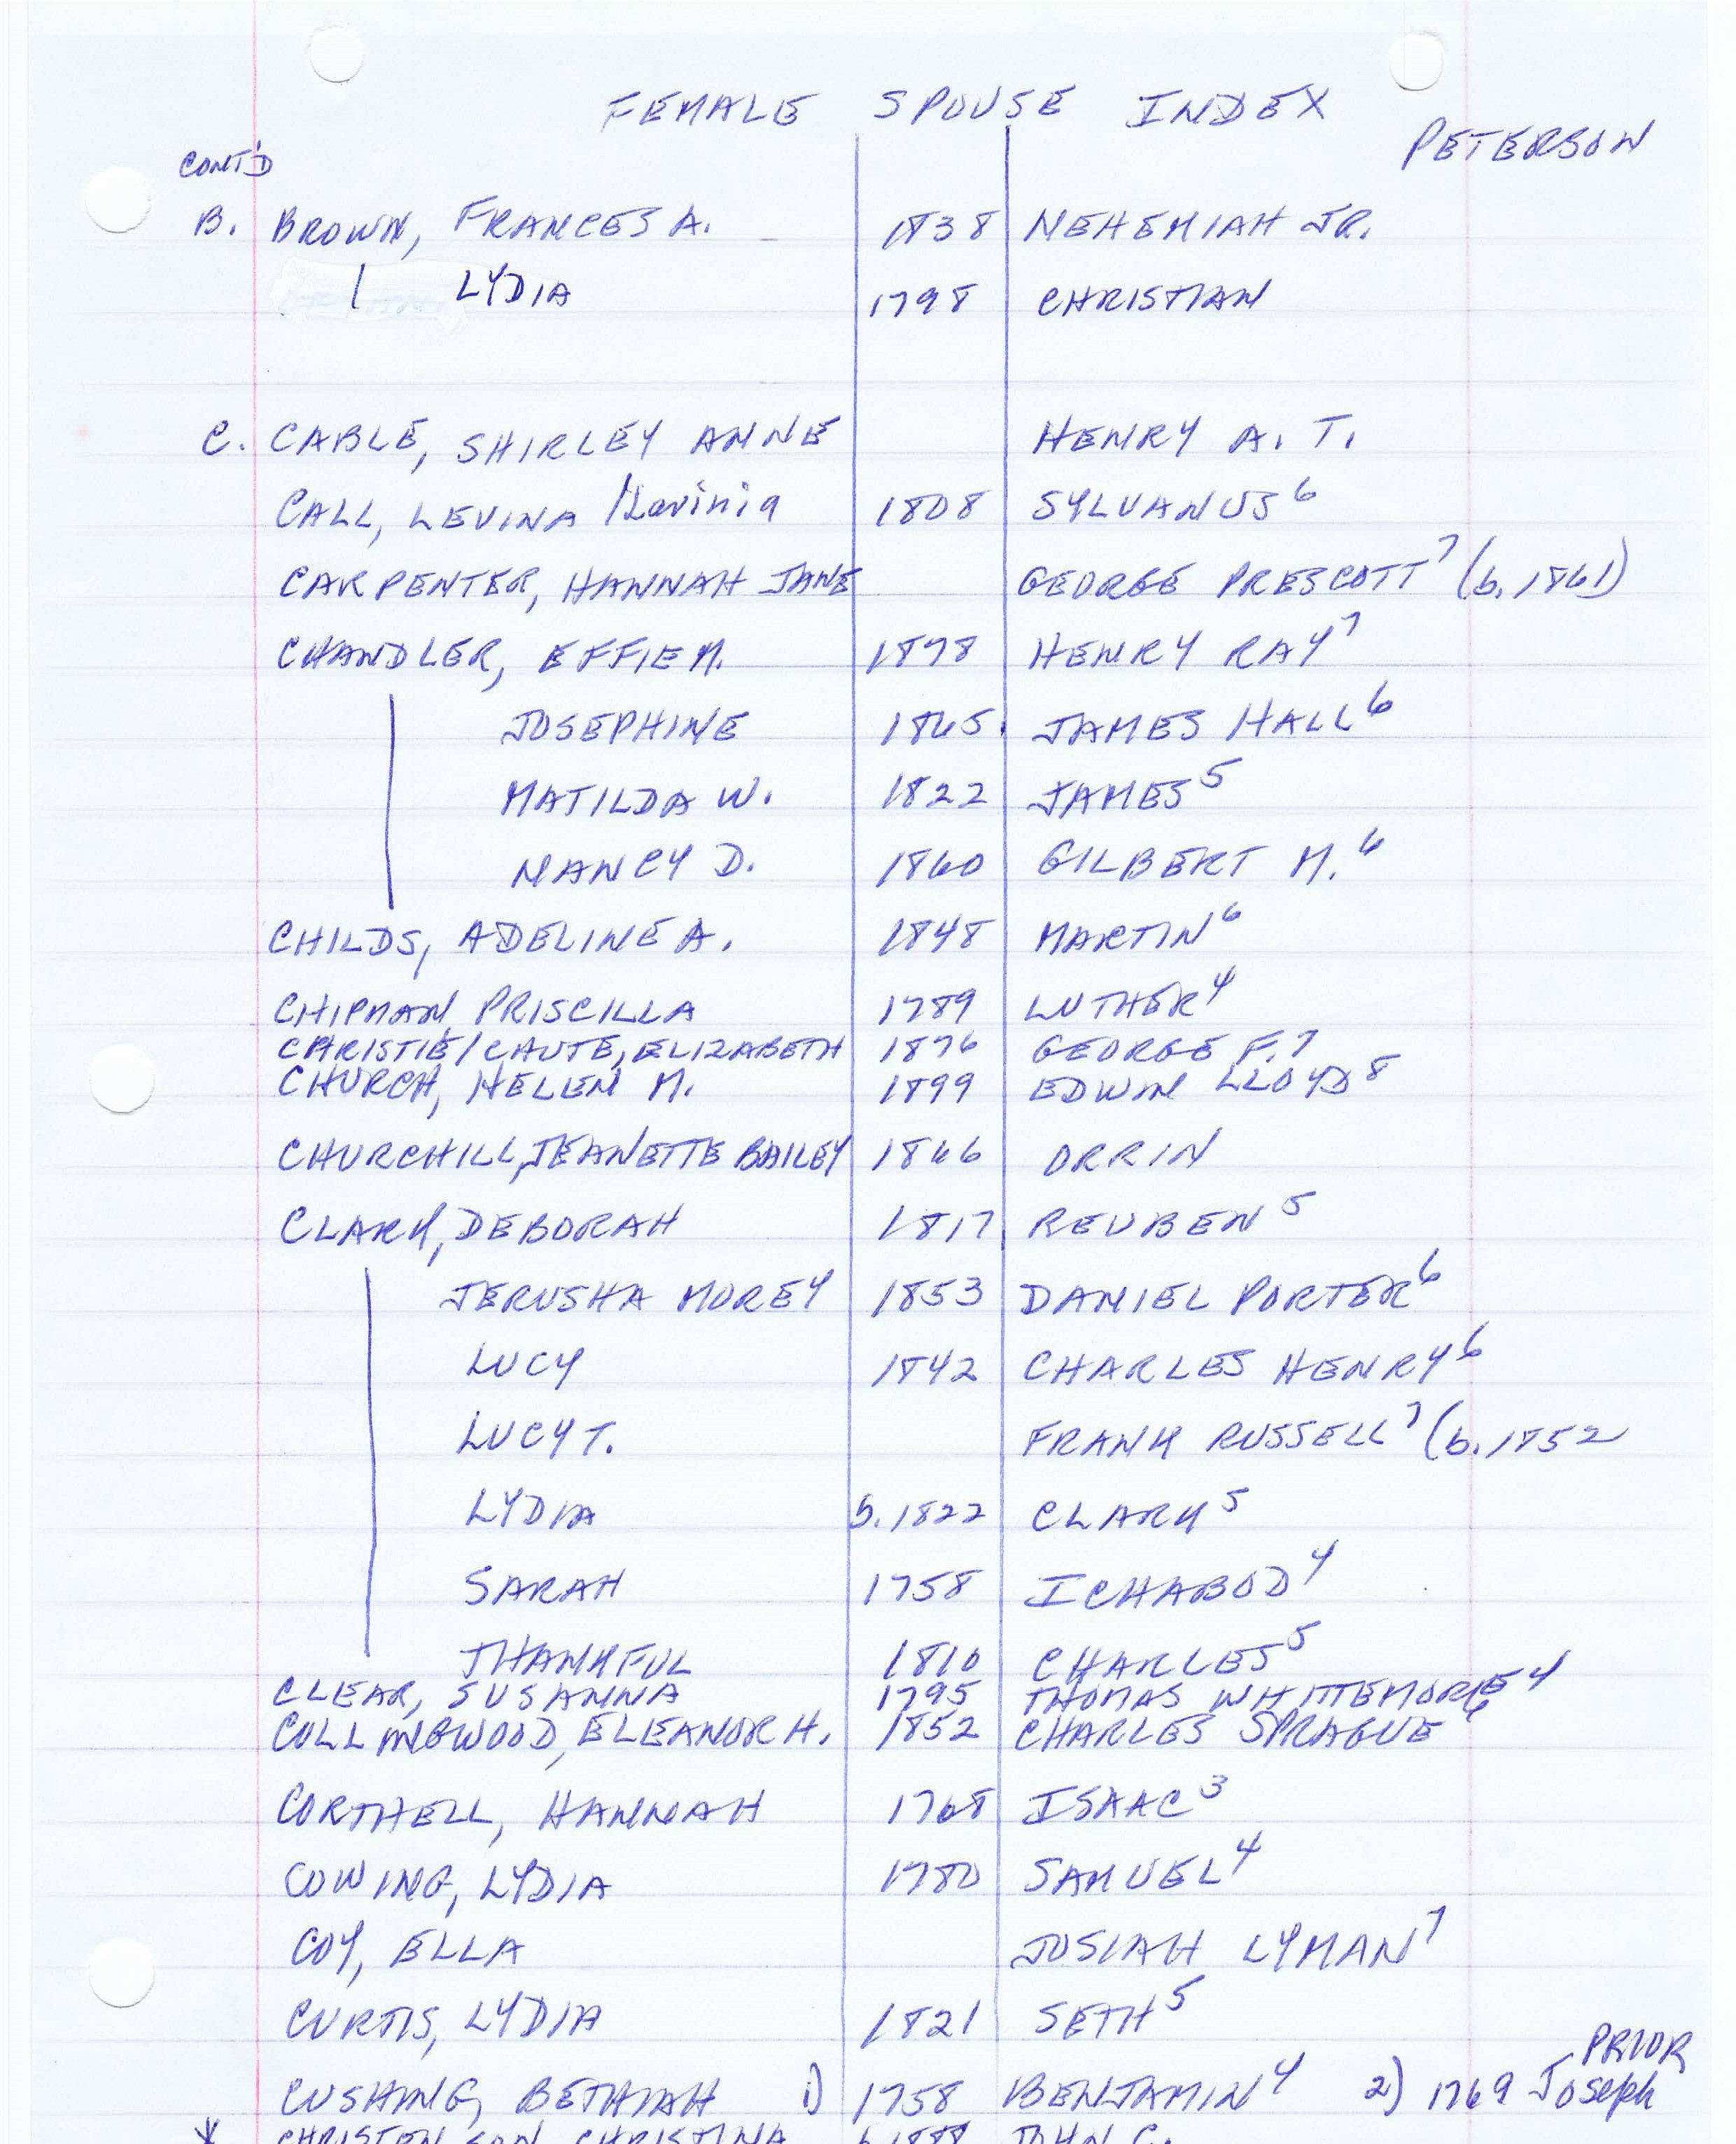 FEMALE SPOUSE INDEX
PETERSON
CONT'D
B. BROWN, FRANCES A. 1838 NEHEMIAH JR.
LYDIA 1798 CHRISTIAN
C. CABLE, SHIRLEY ANNE HENRY A. T.
CALL, LEVINA /Lavinia 1808 SYLVANUS 6
CARPENTER, HANNAH JANE GEORGE PRESCOTT 7 (b. 1861)
CHANDLER, EFFIE M. 1898 HENRY RAY 7
JOSEPHINE 1865 JAMES HALL 6
MATILDA W. 1822 JAMES 5
NANCY D. 1860 GILBERT M. 6
CHILDS, ADELINE A. 1848 MARTIN 6
CHIPMAN, PRISCILLA 1789 LUTHER 4
CHRISTIE/CHUTE, ELIZABETH 1876 GEORGE F. 7
CHURCH, HELEN M. 1899 EDWIN LLOYD 8
CHURCHILL, JEANETTE BAILEY 1866 ORRIN
CLARK, DEBORAH 1817 REUBEN 5
JERUSHA MOREY 1853 DANIEL PORTER 6
LUCY 1842 CHARLES HENRY 6
LUCY T. FRANK RUSSELL 7 (b. 1852
LYDIA b. 1822 CLARK 5
SARAH 1758 ICHABOD 4
THANKFUL 1810 CHARLES 5
CLEAR, SUSANNA 1795 THOMAS WHITTEMORE 4
COLLINGWOOD, ELEANOR H. 1852 CHARLES SPRAGUE 6
CORTHELL, HANNAH 1768 ISAAC 3
COWING, LYDIA 1780 SAMUEL 4
COY, ELLA JOSIAH LYMAN 7
CURTIS, LYDIA 1821 SETH 5
PRIOR
CUSHING, BETHIAH 1) 1758 BENJAMIN 4 2) 1769 Joseph
* CHRISTENSON, CHRISTINA b. 1888 JOHN C.